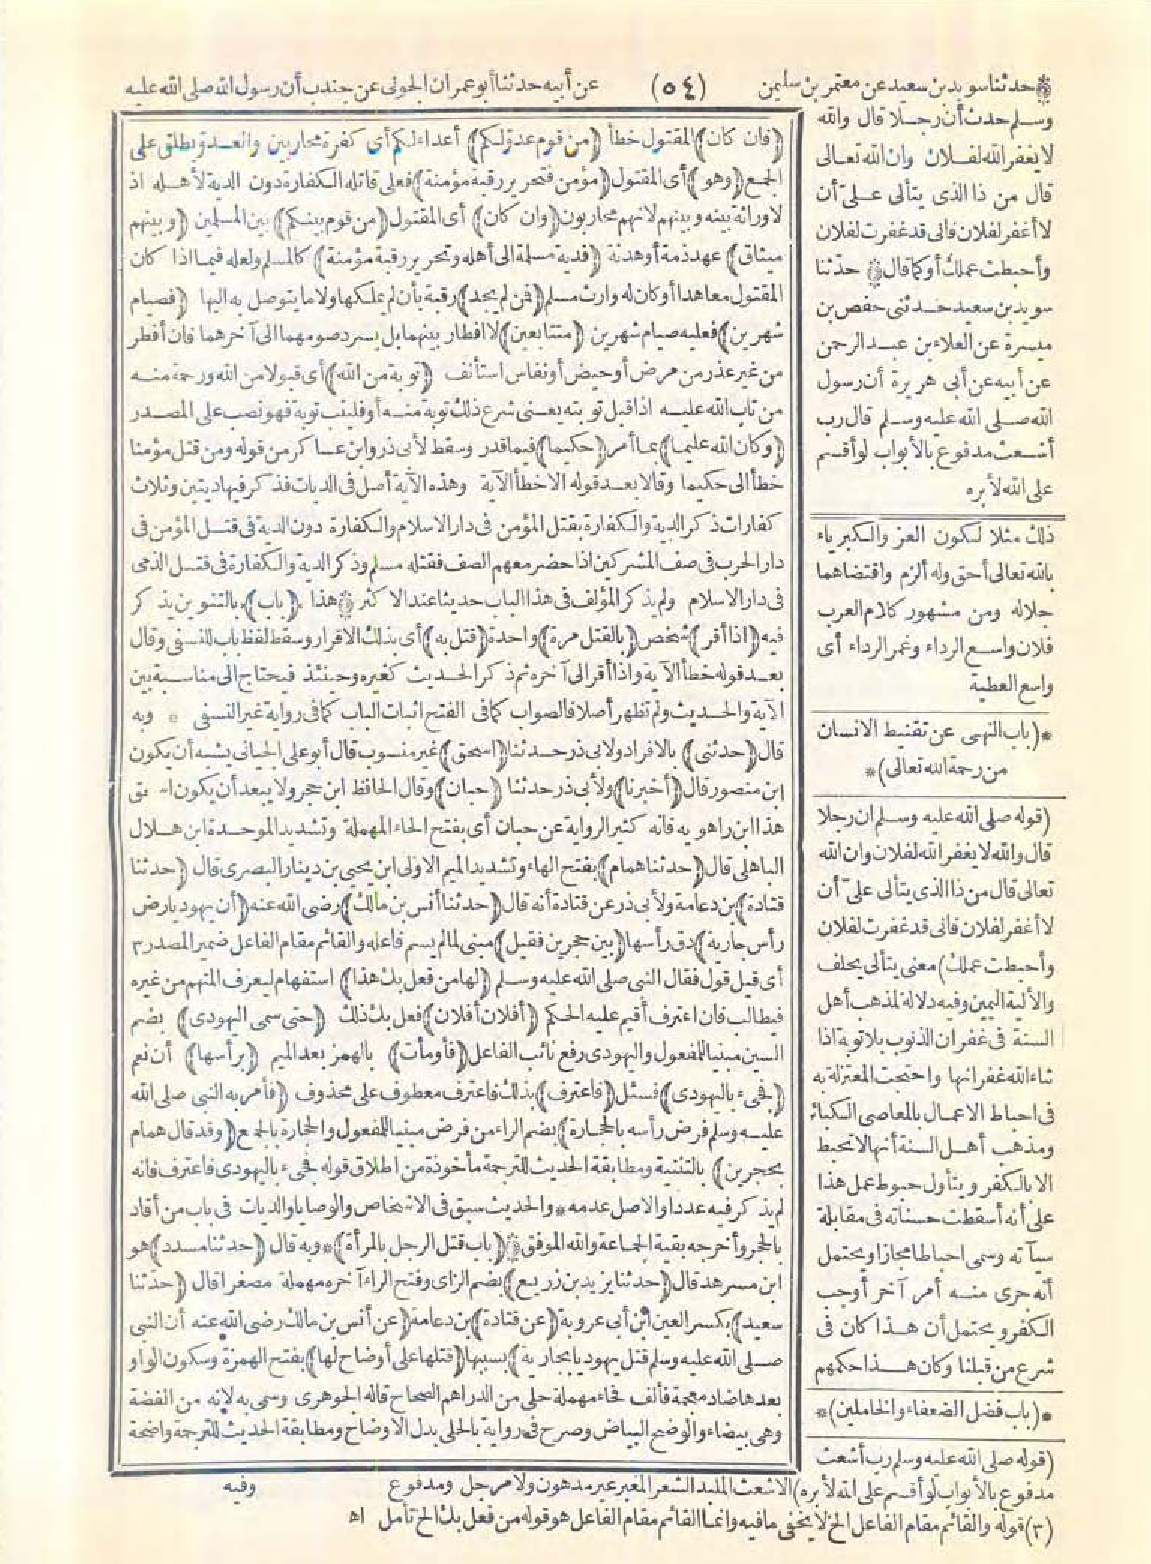 * حدثنا سويد بن سعيد عن معتمر بن سليمن
(٥٤)
عن أبيه حدثنا أبو عمران الجونى عن جندب أن رسول الله صلى الله عليه
وسلم حدث أن رجلا قال والله
لا يغفر الله لفلان وان الله تعالى
قال من ذا الذى يتألى علىّ أن
لا أغفر لفلان فانى قد غفرت لفلان
وأحبطت عملك أو كما قال * حدثنا
سويد بن سعيد حدثنى حفص بن
ميسرة عن العلاء بن عبد الرحمن
عن أبيه عن أبى هريرة أن رسول
الله صلى الله عليه وسلم قال رب
أشعث مدفوع بالأبواب لو أقسم
على الله لأبره
ذلك مثلا لكون العز والكبرياء
بالله تعالى أحق وله ألزم واقتضاهما
جلاله ومن مشهور كلام العرب
فلان واسع الرداء وغمر الرداء أى
واسع العطية
*(باب النهى عن تقنيط الانسان
من رحمة الله تعالى)*
(قوله صلى الله عليه وسلم ان رجلا
قال والله لا يغفر الله لفلان وان الله
تعالى قال من ذا الذى يتألى علىّ أن
لا أغفر لفلان فانى قد غفرت لفلان
وأحبطت عملك) معنى يتألى يحلف
والألية اليمين وفيه دلالة لمذهب أهل
السنة فى غفران الذنوب بلا توبة اذا
شاء الله غفرانها واحتجت المعتزلة به
فى احباط الاعمال بالمعاصى الكبائر
ومذهب أهل السنة أنها لا تحبط
الا بالكفر ويتأول حبوط عمل هذا
على أنه أسقطت حسناته فى مقابلة
سيآته وسمى احباطا مجازا ويحتمل
أنه جرى منه أمر آخر أوجب
الكفر ويحتمل أن هذا كان فى
شرع من قبلنا وكان هذا حكمهم
*(باب فضل الضعفاء والخاملين)*
(قوله صلى الله عليه وسلم رب أشعث
مدفوع بالأبواب لو أقسم على الله لأبره) الاشعث الملبد الشعر المغبر غير مدهون ولا مرجل ومدفوع
(فان كان) المقتول خطأ (من قوم عدوّ لكم) أعداء لكم أى كفرة محاربين والعدوّ يطلق على
الجمع (وهو) أى المقتول (مؤمن فتحرير رقبة مؤمنة) فعلى قاتله الكفارة دون الدية لأهله اذ
لا وراثة بينه وبينهم لانهم محاربون (وان كان) أى المقتول (من قوم بينكم) بين المسلمين (وبينهم
ميثاق) عهد ذمة أو هدنة (فدية مسلمة الى أهله وتحرير رقبة مؤمنة) كالمسلم ولعله فيما اذا كان
المقتول معاهدا أو كان له وارث مسلم (فمن لم يجد) رقبة بأن لم يملكها ولا ما يتوصل به اليها (فصيام
شهرين) فعليه صيام شهرين (متتابعين) لا افطار بينهما بل يسرد صومهما الى آخرهما فان أفطر
من غير عذر من مرض أو حيض أو نفاس استأنف (توبة من الله) أى قبولا من الله ورحمة منه
من تاب الله عليه اذا قبل توبته يعنى شرع ذلك توبة منه أو فليتب توبة فهو نصب على المصدر
(وكان الله عليما) بما أمر (حكيما) فيما قدر وسقط لأبى ذر وابن عساكر من قوله ومن قتل مؤمنا
خطأ الى حكيما وقالا بعد قوله الا خطأ الآية وهذه الآية أصل فى الديات فذكر فيها ديتين وثلاث
كفارات ذكر الدية والكفارة بقتل المؤمن فى دار الاسلام والكفارة دون الدية فى قتل المؤمن فى
دار الحرب فى صف المشركين اذا حضر معهم الصف فقتله مسلم وذكر الدية والكفارة فى قتل الذمى
فى دار الاسلام ولم يذكر المؤلف فى هذا الباب حديثا عند الاكثر * هذا (باب) بالتنوين يذكر
فيه (اذا أقر) شخص (بالقتل مرة) واحدة (قتل به) أى بذلك الاقرار وسقط لفظ باب للنسفى وقال
بعد قوله خطأ الآية واذا أقر الى آخره ثم ذكر الحديث كغيره وحينئذ فيحتاج الى مناسبة بين
الآية والحديث ولم تظهر أصلا فالصواب كما فى الفتح اثبات الباب كما فى رواية غير النسفى * وبه
قال (حدثنى) بالافراد ولابى ذر حدثنا (اسحق) غير منسوب قال أبو على الجيانى يشبه أن يكون
ابن منصور قال (أخبرنا) ولأبى ذر حدثنا (حبان) وقال الحافظ ابن حجر ولا يبعد أن يكون اسحق
هذا ابن راهويه فانه كثير الرواية عن حبان أى بفتح الحاء المهملة وتشديد الموحدة ابن هلال
الباهلى قال (حدثنا همام) بفتح الهاء وتشديد الميم الاولى ابن يحيى بن دينار البصرى قال (حدثنا
قتادة) بن دعامة ولأبى ذر عن قتادة أنه قال (حدثنا أنس بن مالك) رضى الله عنه (أن يهوديا رض
رأس جارية) دق رأسها (بين حجرين فقيل) مبنى لما لم يسم فاعله والقائم مقام الفاعل ضمير المصدر ٣
أى قيل قول فقال النبى صلى الله عليه وسلم (لها من فعل بك هذا) استفهام ليعرف المتهم من غيره
فيطالب فان اعترف أقيم عليه الحكم (أفلان أفلان) فعل بك ذلك (حتى سمى اليهودى) بضم
السين مبنيا للمفعول واليهودى رفع نائب الفاعل (فأومأت) بالهمز بعد الميم (برأسها) أن نعم
(فجىء باليهودى) فسئل (فاعترف) بذلك فاعترف معطوف على محذوف (فأمر به النبى صلى الله
عليه وسلم فرض رأسه بالحجارة) بضم الراء من فرض مبنيا للمفعول والحجارة بالجمع (وقد قال همام
بحجرين) بالتثنية ومطابقة الحديث للترجمة مأخوذة من اطلاق قوله فجىء باليهودى فاعترف فانه
لم يذكر فيه عددا والاصل عدمه * والحديث سبق فى الاشخاص والوصايا والديات فى باب من أقاد
بالحجر وأخرجه بقية الجماعة والله الموفق * (باب قتل الرجل بالمرأة) * وبه قال (حدثنا مسدد) هو
ابن مسرهد قال (حدثنا يزيد بن زريع) بضم الزاى وفتح الراء آخره مهملة مصغرا قال (حدثنا
سعيد) بكسر العين ابن أبى عروبة (عن قتادة) بن دعامة (عن أنس بن مالك رضى الله عنه أن النبى
صلى الله عليه وسلم قتل يهوديا بجارية) بسببها (قتلها على أوضاح لها) بفتح الهمزة وسكون الواو
بعدها ضاد معجمة فألف فحاء مهملة حلى من الدراهم الصحاح قاله الجوهرى وسمى به لانه من الفضة
وهى بيضاء والوضح البياض وصرح فى رواية بالحلى بدل الاوضاح ومطابقة الحديث للترجمة واضحة
وفيه
(٣) قوله والقائم مقام الفاعل الخ لا يخفى ما فيه وانما القائم مقام الفاعل هو قوله من فعل بك الخ تأمل اه